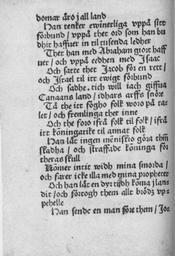 domar åro j all land
Han tencker ewinnerliga vppå sitt
förbund / vppå thet ord som han bu
dhit haffuer in til tusende ledher
Thet han med Abraham giort haff
uer / och vppå eedhen med Isaac
Och satte thet Jacob för en rett /
och Israel til itt ewigt förbund
Och sadhe, tich will iach giffua
Canaans land / idhars arffs lott
Tå the itt fogho folk woro på tal
et / och fremlinga ther inne
Och the foro ifrå folk til folk / ifrå
itt köningarike til annat folk
Han lät ingen menniskio göra them
skadha / och straffade köninga för
theras skull
Komer intit widh mina smorda /
och farer icke illa med mina propheter
Och han lät en dyr tiidh koma j land
dit / och förtogh them alt brödz vp
pehelle
Han sende en man före them / Jos